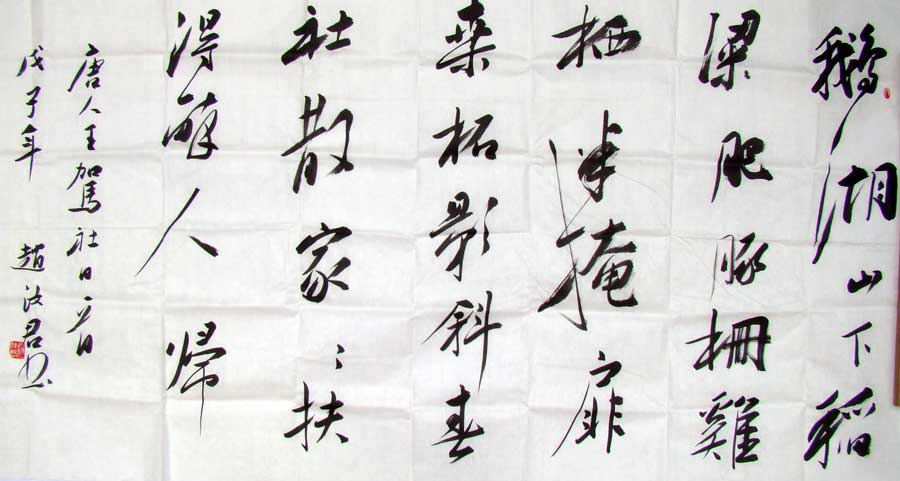 鵝湖山下稻
梁肥豚柵雞
栖半掩扉
桑柘影斜春
社散家〻扶
得醉人歸
唐人王駕社日一首
戊子年 趙君书